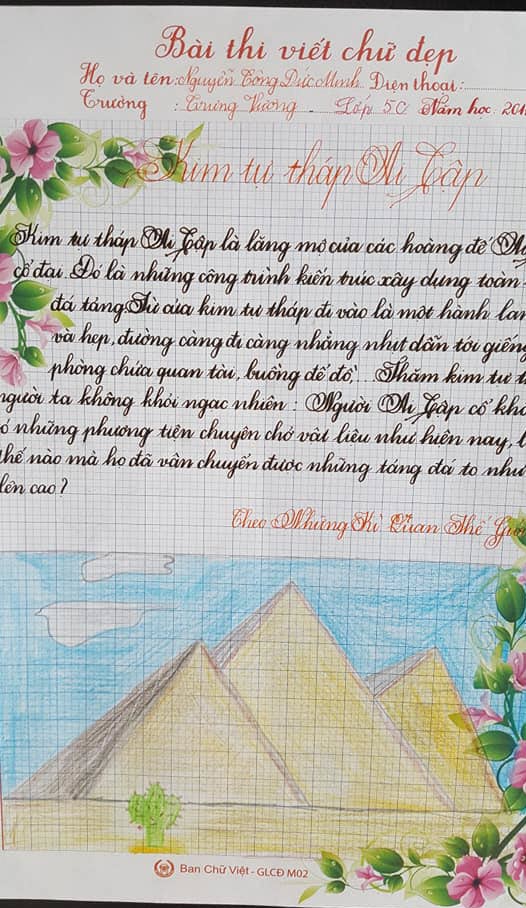 Bài thi viết chữ đẹp
Họ và tên: Nguyễn Công Đức Minh Điện thoại:
Trường : Trưng Vương. Lớp 5C Năm học: 201
Kim tự tháp Ai Cập
Kim tự tháp Ai Cập là lăng mộ của các hoàng đế
cổ đại. Đó là những công trình kiến trúc xây dựng toàn
đá tảng. Từ cửa kim tự tháp đi vào là một hành lan
và hẹp, đường càng đi càng nhằng nhịt dẫn tới giến
phòng chứa quan tài, buồng để đồ,... Thăm kim tự t
người ta không khỏi ngạc nhiên : Người Ai Cập cổ khô
ó những phương tiện chuyên chở vật liệu như hiện nay, l
thế nào mà họ đã vận chuyển được những tảng đá to như
lên cao?
Theo Những Kì Quan Thế Giới
Ban Chữ Việt - GLCĐ M02